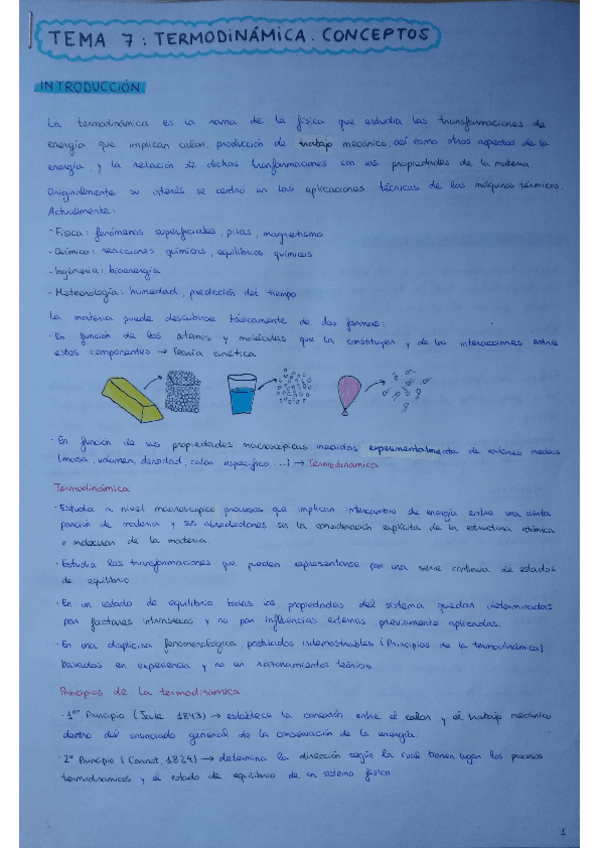 TEMA 7: TERMODINÁMICA. CONCEPTOS
INTRODUCCIÓN
La termodinámica es la rama de la física que estudia las transformaciones de
energía que implican calor, producción de trabajo mecánico, así como otros aspectos de la
energía, y la relación de dichas transformaciones con las propiedades de la materia.
Originalmente su interés se centró en las aplicaciones técnicas de las máquinas térmicas.
Actualmente:
- Física: fenómenos superficiales, pilas, magnetismo
- Química: reacciones químicas, equilibrios químicos
- Ingeniería: bioenergía
- Meteorología: humedad, predicción del tiempo
La materia puede describirse básicamente de dos formas:
- En función de los átomos y moléculas que la constituyen y de las interacciones entre
estos componentes → Teoría cinética
- En función de sus propiedades macroscópicas, medidas experimentalmente de valores medios
(masa, volumen, densidad, calor específico, ...) → Termodinámica
Termodinámica
- Estudia a nivel macroscópico procesos que implican intercambio de energía entre una cierta
porción de materia y sus alrededores sin la consideración explícita de la estructura atómica
o molecular de la materia.
- Estudia las transformaciones que pueden representarse por una serie continua de estados
de equilibrio
- En un estado de equilibrio todas las propiedades del sistema quedan determinadas
por factores intrínsecos y no por influencias externas previamente aplicadas.
- En una disciplina fenomenológica, postulados indemostrables (Principios de la termodinámica)
basados en experiencia y no en razonamientos teóricos.
Principios de la termodinámica
- 1er Principio (Joule 1843) → establece la conexión entre el calor y el trabajo mecánico
dentro del enunciado general de la conservación de la energía.
- 2º Principio (Carnot, 1824) → determina la dirección según la cual tienen lugar los procesos
termodinámicos y el estado de equilibrio de un sistema físico.
1